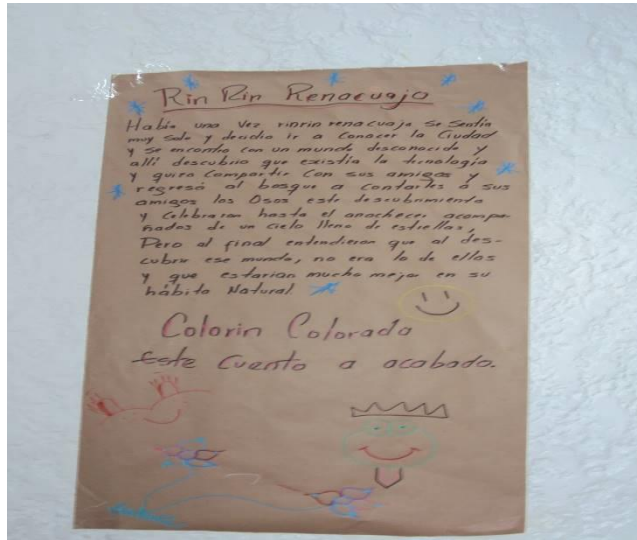 Rin Rin Renacuajo
Había una vez rinrin renacuajo se sentía
muy solo y decidio ir a conocer la Ciudad
y se encontro con un mundo disconocido y
allí descubrio que existía la tecnología
y quiso compartir con sus amigos y
regresó al bosque a contarles a sus
amigos los Osos este descubrimiento
y celebraron hasta el anochecer acompa-
ñados de un cielo lleno de estrellas,
Pero al final entendieron que al des-
cubrir ese mundo, no era lo de ellos
y que estarían mucho mejor en su
hábito Natural
Colorin Colorado
Este Cuento a acabado.